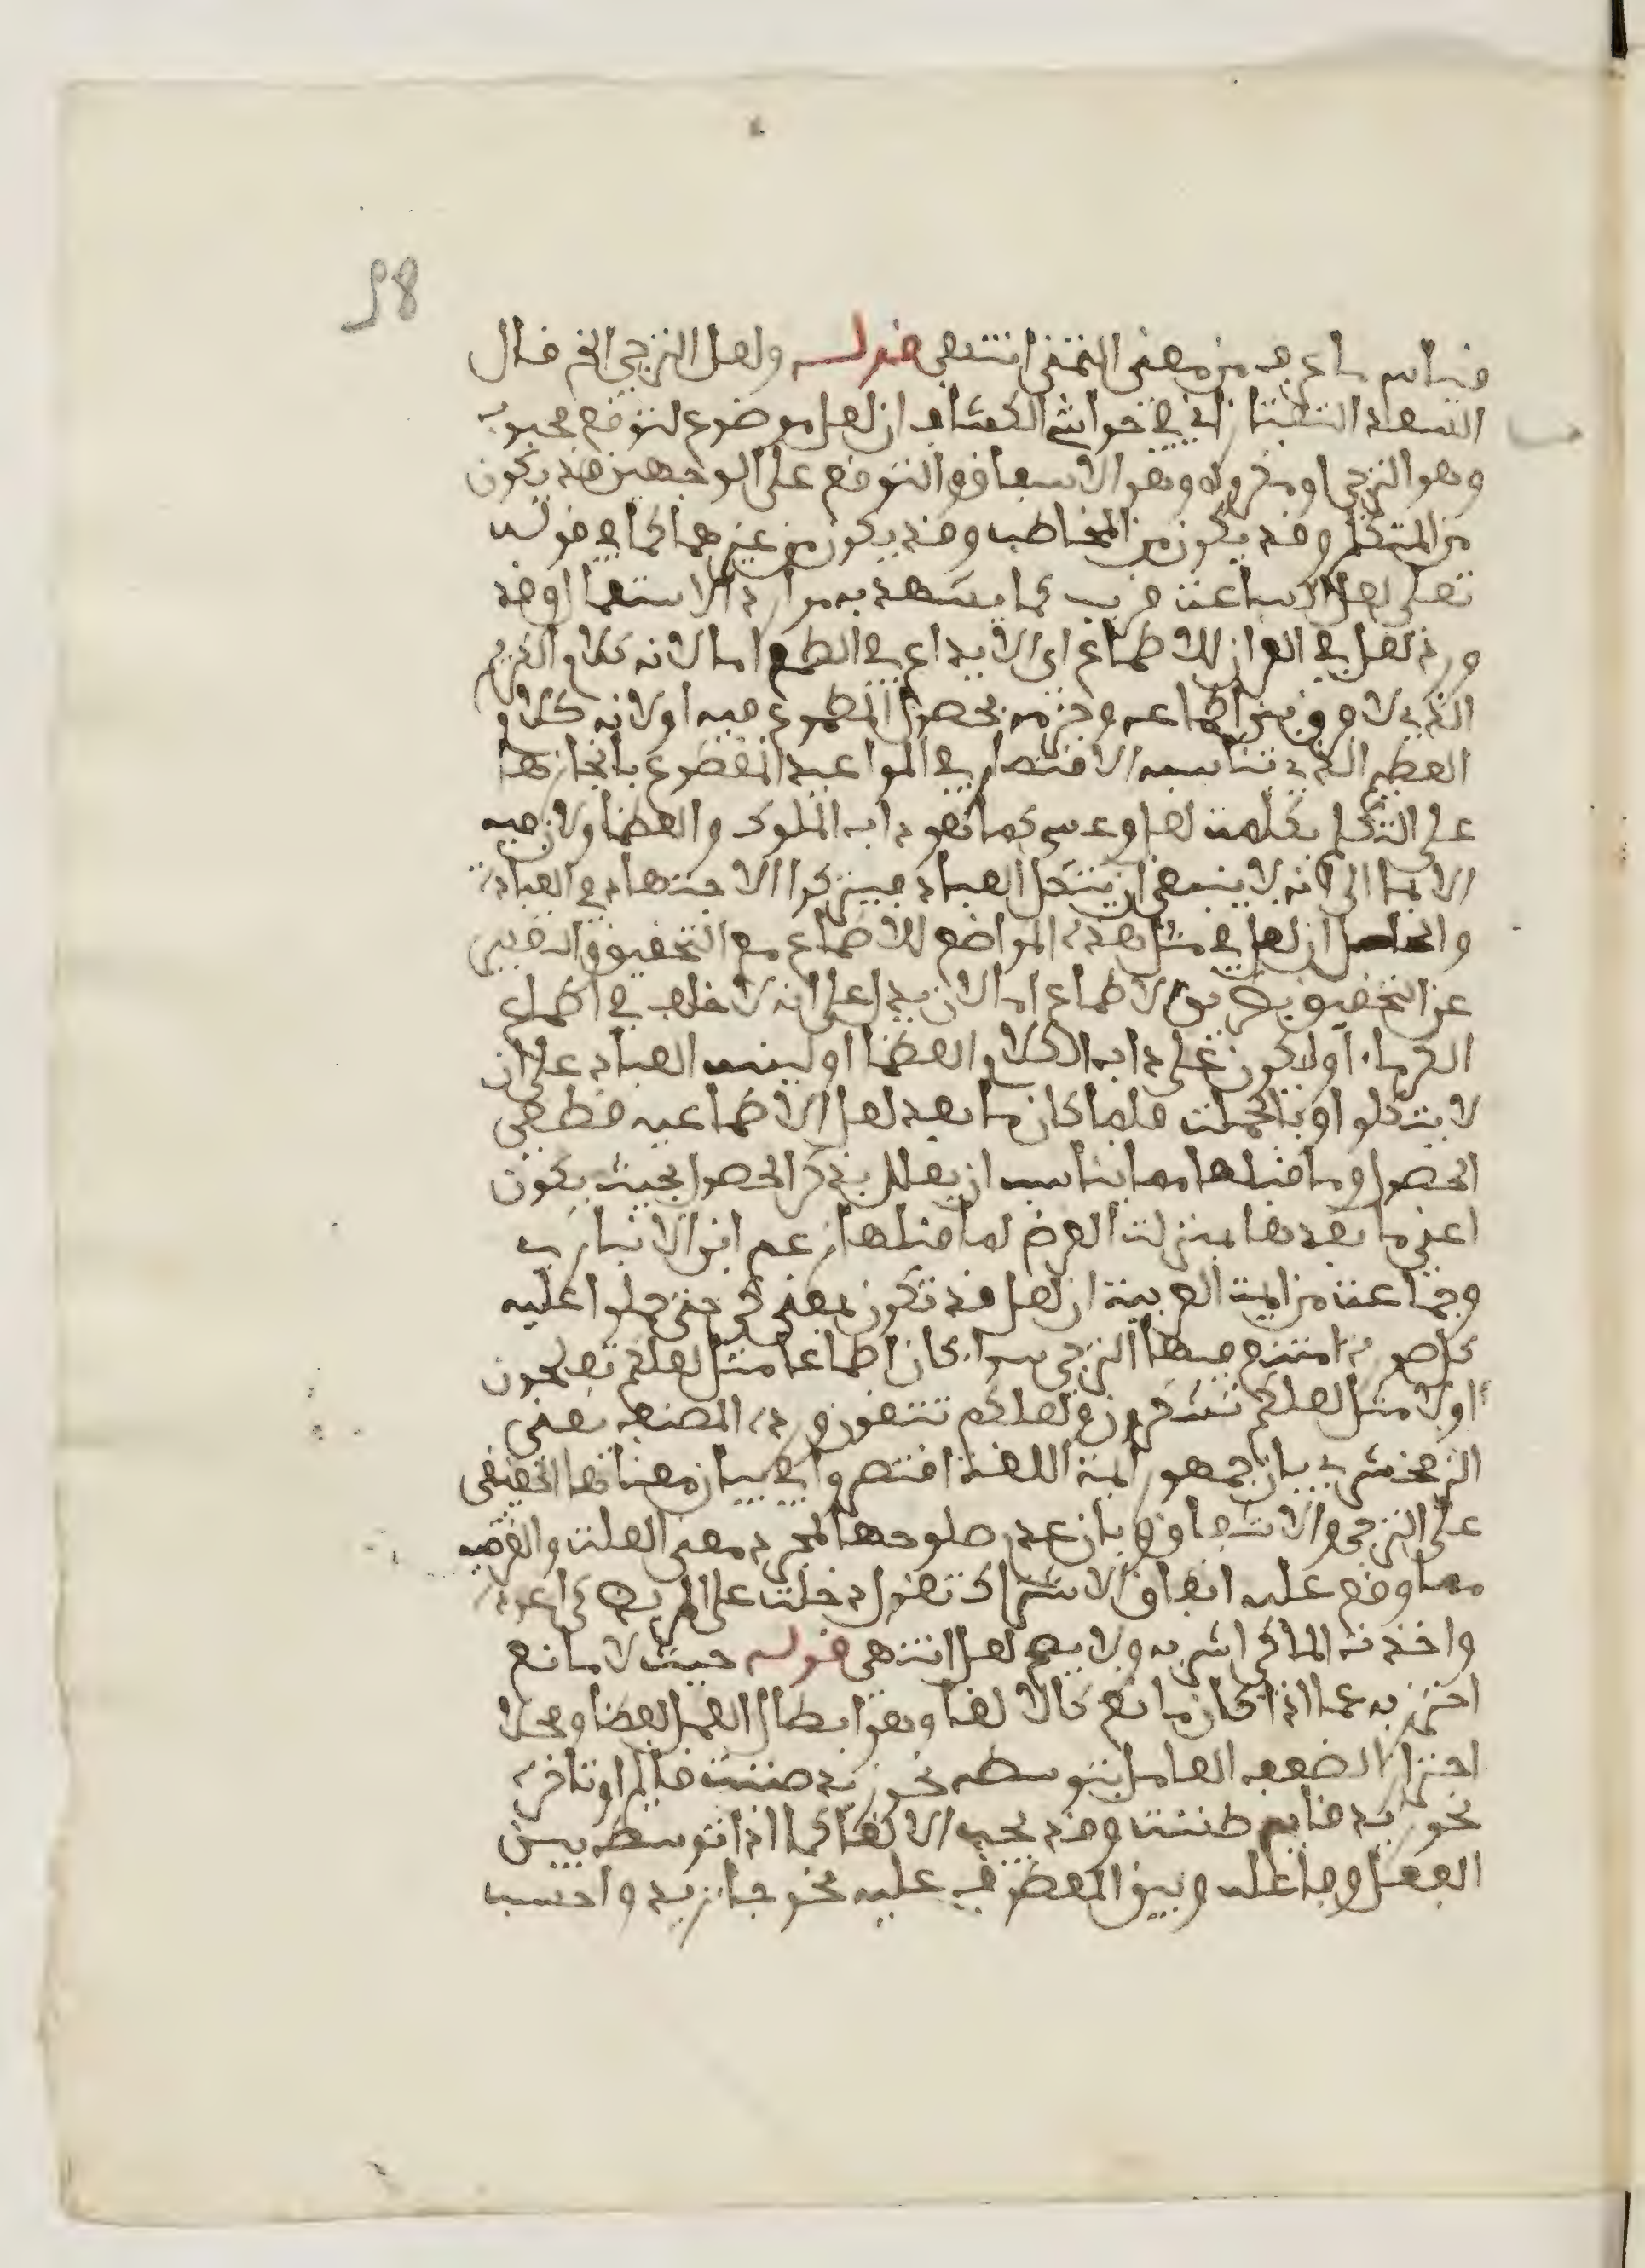 98
قياس ما عرف من معنى التمني انتهى قوله ولعل الترجي الخ قال
السعد التفتازاني في حواشي الكشاف ان لعل موضوع لتوقع محبوب
وهو الترجي او مكروه وهو الاشفاق والتوقع على الوجهين قد يكون
من المتكلم وقد يكون من المخاطب وقد يكون من غيرهما كما في قوله
تعلى لعل الساعت قريب كما يشهد به موارد الاستعمال وقد
ورد لعل في القرءان للاطماع اى الايداع في الطمع اما لانه كلام الكريم
الذي لا فرق بين اطماعه وجزمه بحصول المطموع فيه او لانه كلام
العظيم الذي تناسبه الاقتصار في المواعيد المقطوع بانجازها
على التكلم بكلمت لعل وعسى كما هو داب الملوك والعظما ولان فيه
الايما الى انه لا ينبغي ان يتكل العباد فيتركوا الاجتهاد في العبادة
والحاصل ان لعل في مثل هذه المواضع للاطماع مع التحقيق والتعبير
عن التحقيق بطريق الاطماع اما لان يدل على انه لا خلف في اطماع
الكرماء او لا كون على داب الكلام العظما او لينبه العباد على ان
لا يتكلوا وبالجملت فلما كان ما بعد لعل الاطماعيه قطعي
الحصول وما قبلها مما يناسب ان يعلل بذكر الحصول بحيث يكون
اعني ما بعدها بمنزلت الغرض لما قبلها زعم ابن الانباري
وجماعت من ايمت العربية ان لعل قد تكون بمعنى كي حتى حملوا عليه
كل صورة امتنع فيها الترجي سواء كان اطماعا مثل لعلكم تفلحون
اولا مثل لعلكم تشكرون ولعلكم تتقون ورده المصنف يعني
الزمخشري بان جمهور ايمة اللغة اقتصروا في بيان معناها الحقيقي
على الترجي والاشفاق وبان عدم صلوحها لمجرد معنى العلت والغرضيه
مما وقع عليه اتفاق الاشراك تقول دخلت على المريض كي اعوده
واخذت الماء كي اشربه ولا يصح لعل انتهى قوله حيث لا مانع
احترز به عما اذا كان مانع كالالغا وهو ابطال العمل لفظا ومحلا
احترازا لضعف العامل بتوسطه نحو زيد ظننت قايم او تاخره
نحو زيد قايم ظننت وقد يجب الالغا كما اذا توسط بين
الفعل وفاعله وبين المعطوف عليه نحو جا زيد واحسب